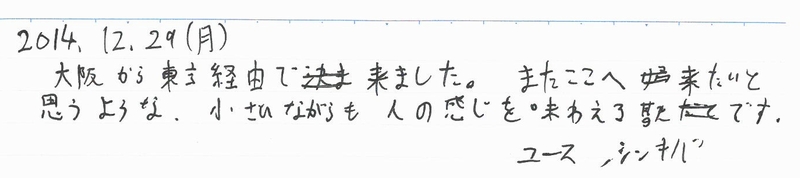 2014.12.29(月)
大阪から東京経由で来ました。またここへ来たいと
思うような、小さいながらも人の感じを味わえるです。
ユース